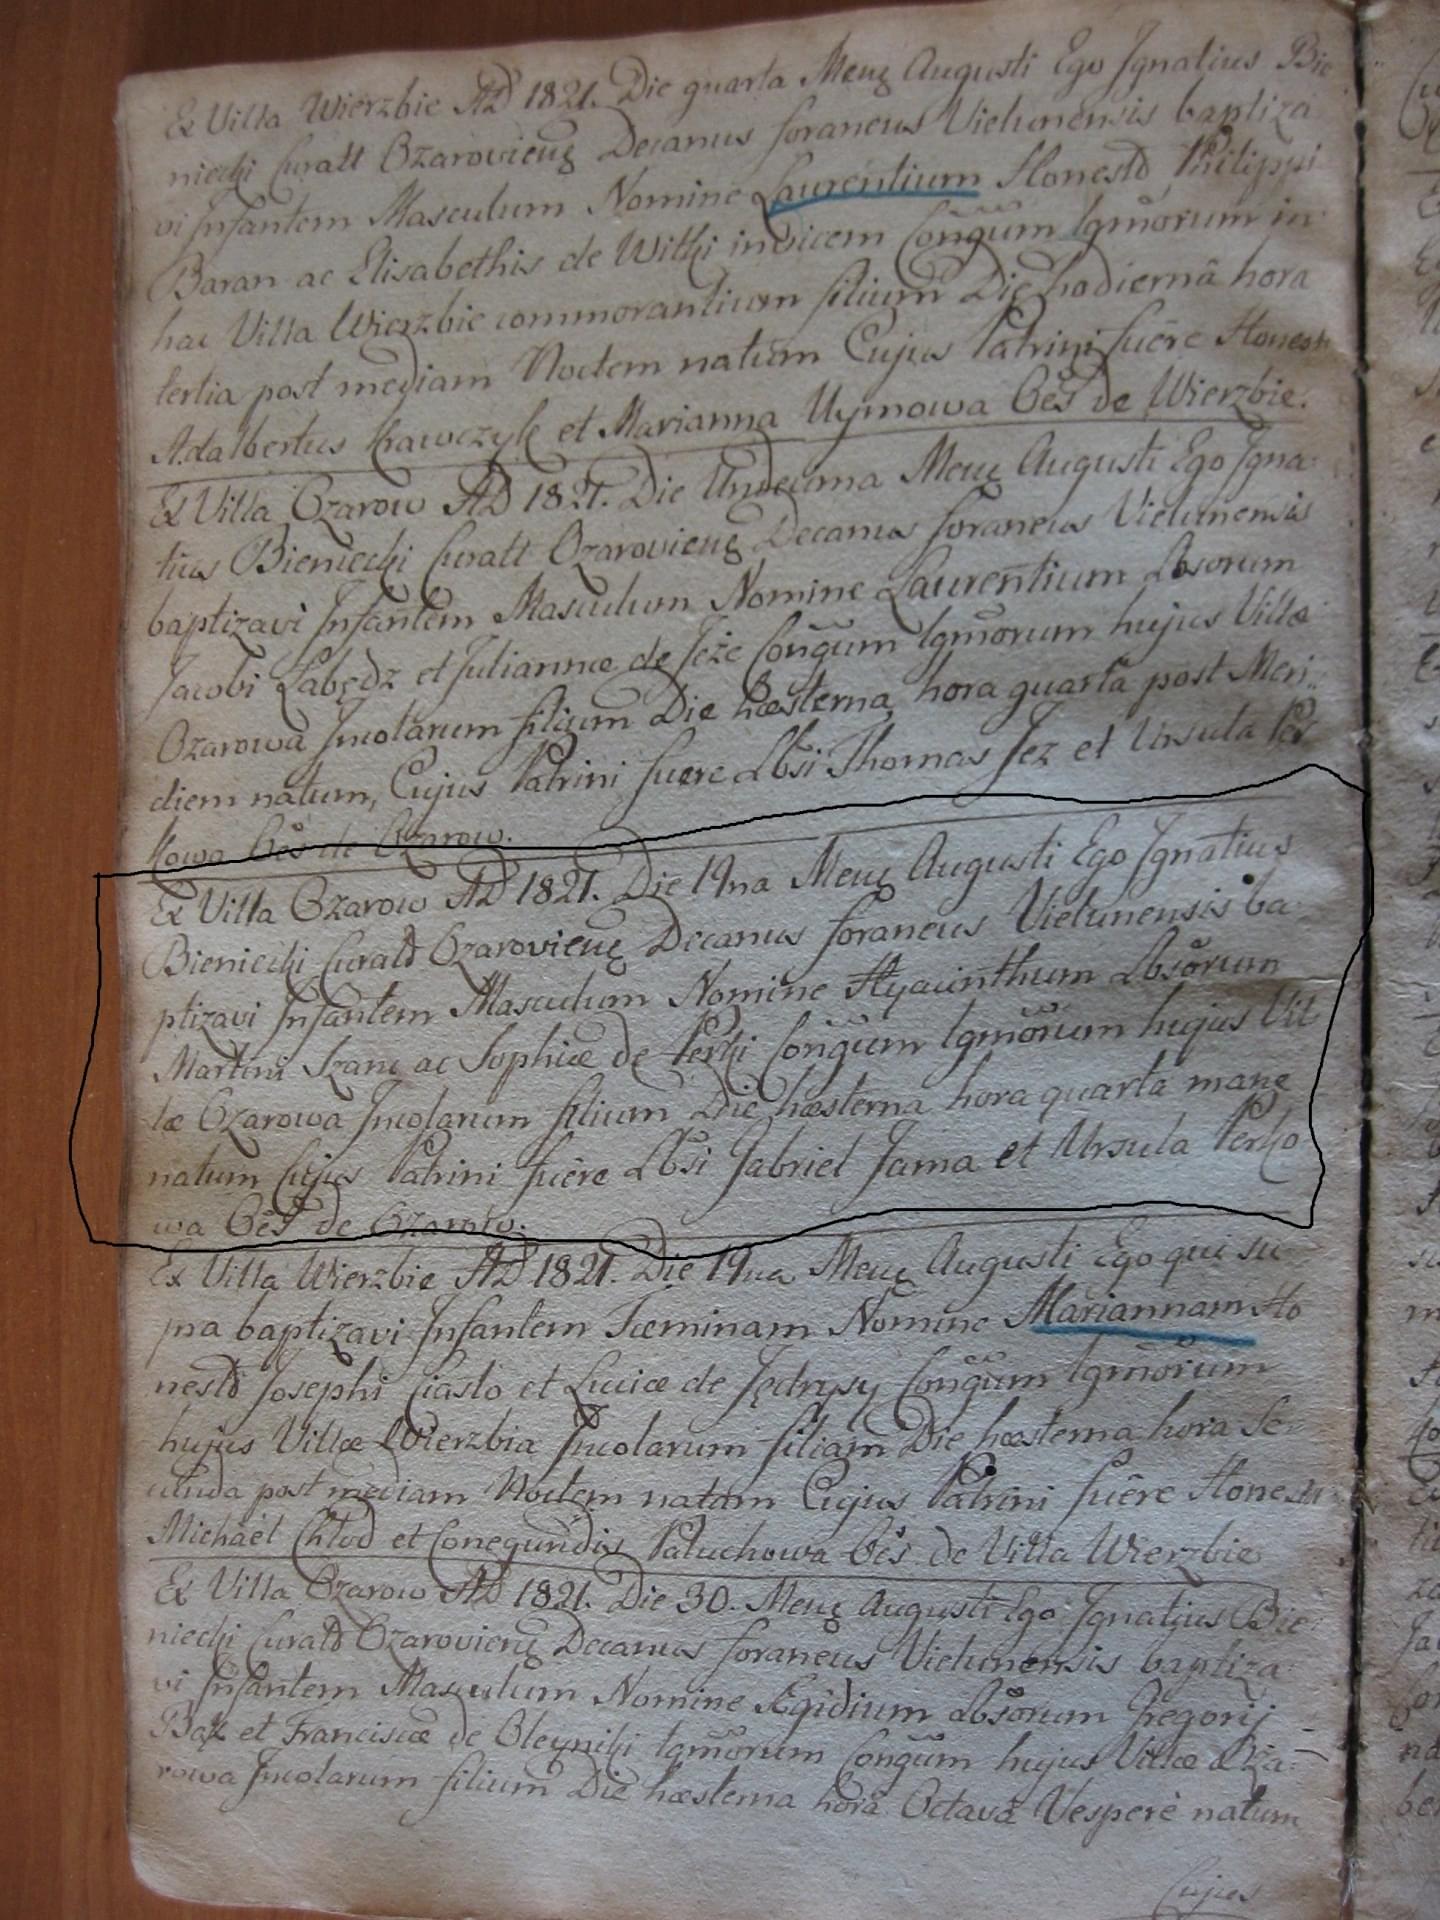 Ex Villa Wierzbie AD 1821. Die quarta Mens Augusti Ego Ignatius Bie
niecki Curatt Ozaroviens Decanus foraneus Vielunensis baptiza
vi Infantem Masculum Nomine Laurentium Honestō Philippi
Baran ac Elisabethis de Witki invicem Coñgum lgm̃orum in
hac Villa Wierzbie commorantium filium Die hodiernâ hora
tertia post mediam Noctem natum Cujus Patrini fuêre Honesti
Adalbertus Krawczyk et Marianna Uymowa Oēs de Wierzbie.
Ex Villa Ozarow AD 1821. Die Undecima Mens Augusti Ego Igna
tius Bieniecki Curatt Ozaroviens Decanus foraneus Vielunensis
baptizavi Infantem Masculum Nomine Laurentium Lbsorum
Jacobi Łabędz et Juliannæ de Jeże Coñgum lgm̃orum hujus Villæ
Ozarowa Incolarum filium Die hæsterna hora quarta post Meri
diem natum, Cujus Patrini fuere Lb̃si Thomas Jez et Ursula Per
kowa Oēs de Ozarow.
Ex Villa Ozarow AD 1821. Die 19na Mens Augusti Ego Ignatius
Bieniecki Curatō Ozaroviens Decanus foraneus Vielunensis ba
ptizavi Infantem Masculum Nomine Hyacinthum Lbsorum
Martini Szanc ac Sophiæ de Perki Coñgum lgm̃orum hujus Vil
læ Ozarowa Incolarum filium Die hæsterna hora quarta mane
natum Cujus Patrini fuêre Lb̃si Gabriel Jama et Ursula Perko
wa Oēs de Ozarow.
Ex Villa Wierzbie AD 1821. Die 19na Mens Augusti Ego qui su
pra baptizavi Infantem Fæminam Nomine Mariannam Ho
nestō Josephi Ciasto et Luciæ de Jędrysy Coñgum lgm̃orum
hujus Villæ Wierzbia Incolarum filiam Die hæsterna hora Se
cunda post mediam Noctem natam Cujus Patrini fuêre Honesti
Michaël Chłod et Conegundis Paluchowa Oēs de Villa Wierzbie
Ex Villa Ozarow AD 1821. Die 30. Mens Augusti Ego Ignatius Bie
niecki Curatō Ozaroviens Decanus foraneus Vielunensis baptiza
vi Infantem Masculum Nomine Ægidium Lbsorum Gregorij
Bąk et Franciscæ de Oleyniki lgm̃orum Coñgum hujus Villæ Oża
rowa Incolarum filium Die hæsterna hora Octava Vesperè natum
Cujus